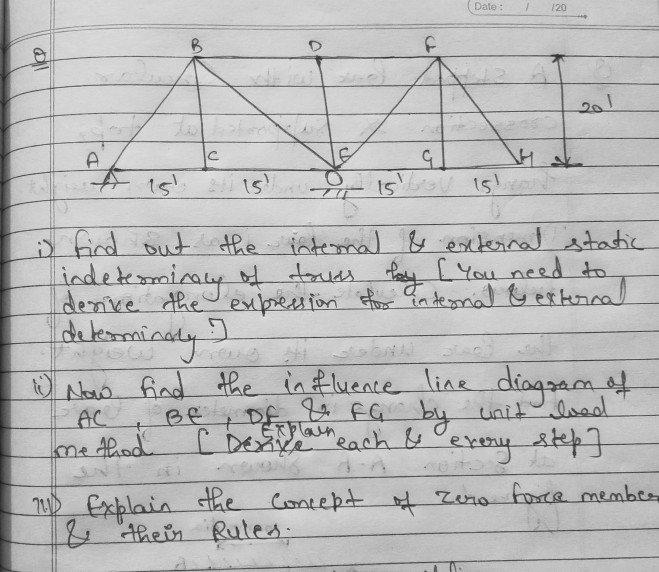 Date : / /20
Q
B D F
20'
A C E G H
15' 15' 15' 15'
i) find out the internal & external static
indeterminacy of truss [You need to
derive the expression for internal & external
determinaty?]
ii) Now find the influence line diagram of
AC, BE, DE & FG by unit load
method [Explain each & every step]
iii) Explain the concept of zero force member
& their Rules.